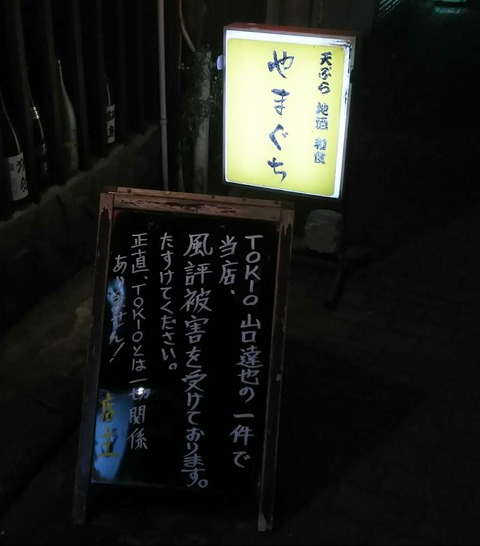 天ぷら 地酒 和食
やまぐち
TOKIO 山口達也の一件で
当店、
風評被害を受けております。
たすけてください。
正直、TOKIOとは一切関係
ありません！
店主